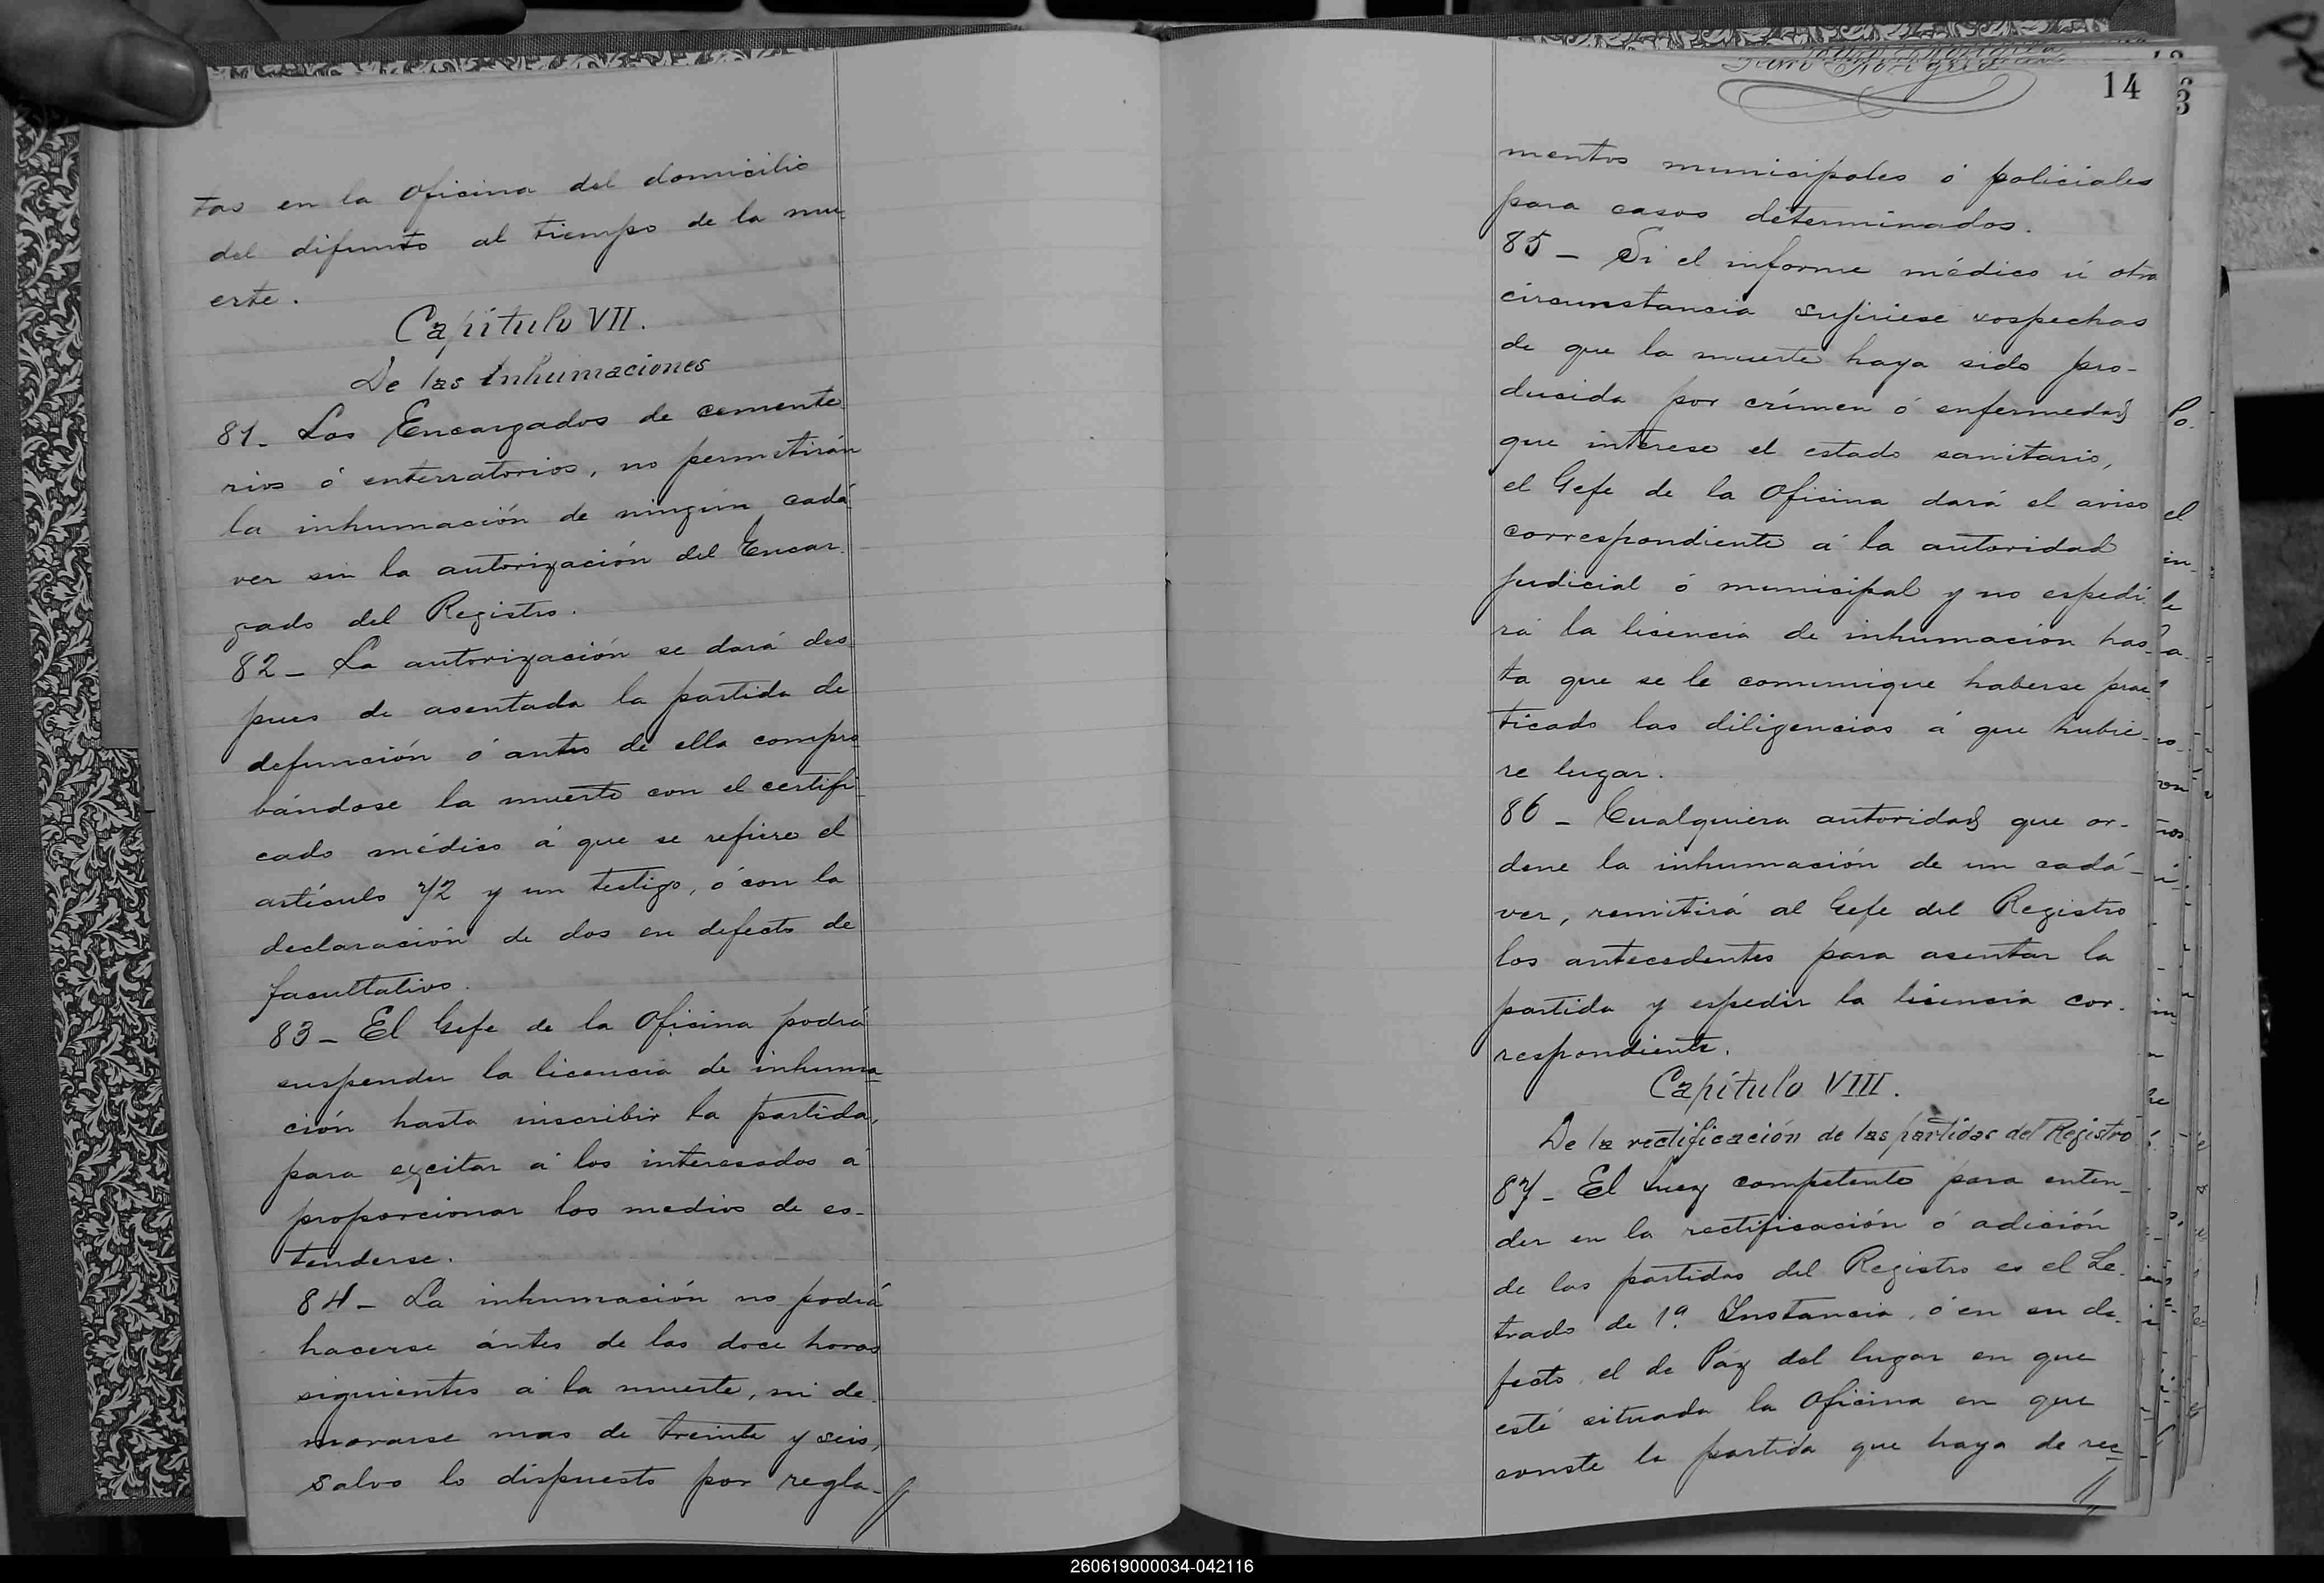 tas en la Oficina del domicilio
del difunto al tiempo de la mu
erte.
Capítulo VII.
De las Inhumaciones
81- Los Encargados de cemente
rios ó enterratorios, no permitirán
la inhumación de ningún cadá
ver sin la autorización del Encar
gado del Registro.
82- La autorización se dará des
pues de asentada la partida de
defunción ó antes de ella compro
bándose la muerte con el certifi
cado médico á que se refiere el
artículo 72 y un testigo, ó con la
declaración de dos en defecto de
facultativo.
83- El Gefe de la Oficina podrá
suspender la licencia de inhuma
ción hasta inscribir la partida,
para excitar á los interesados á
proporcionar los medios de es-
tenderse.
84- La inhumación no podrá
hacerse ántes de las doce horas
siguientes á la muerte, ni de
morarse mas de treinta y seis,
salvo lo dispuesto por regla-
14
mentos municipales ó policiales
para casos determinados.
85- Si el informe médico ú otra
circunstancia sufiriese sospechas
de que la muerte haya sido pro-
ducida por crímen ó enfermedad
que interese el estado sanitario,
el Gefe de la Oficina dará el aviso
correspondiente á la autoridad
judicial ó municipal y no espedi
rá la licencia de inhumacion has-
ta que se le comunique haberse prac
ticado las diligencias á que hubie-
re lugar.
86- Cualquiera autoridad que or-
dene la inhumación de un cadá-
ver, remitirá al Gefe del Registro
los antecedentes para asentar la
partida y espedir la licencia cor-
respondiente.
Capítulo VIII.
De la rectificación de las partidas del Registro
87- El Juez competente para enten-
der en la rectificación ó adición
de las partidas del Registro es el Le-
trado de 1ª Instancia, ó en su de-
fecto, el de Paz del lugar en que
esté situada la Oficina en que
conste la partida que haya de rec
260619000034-042116